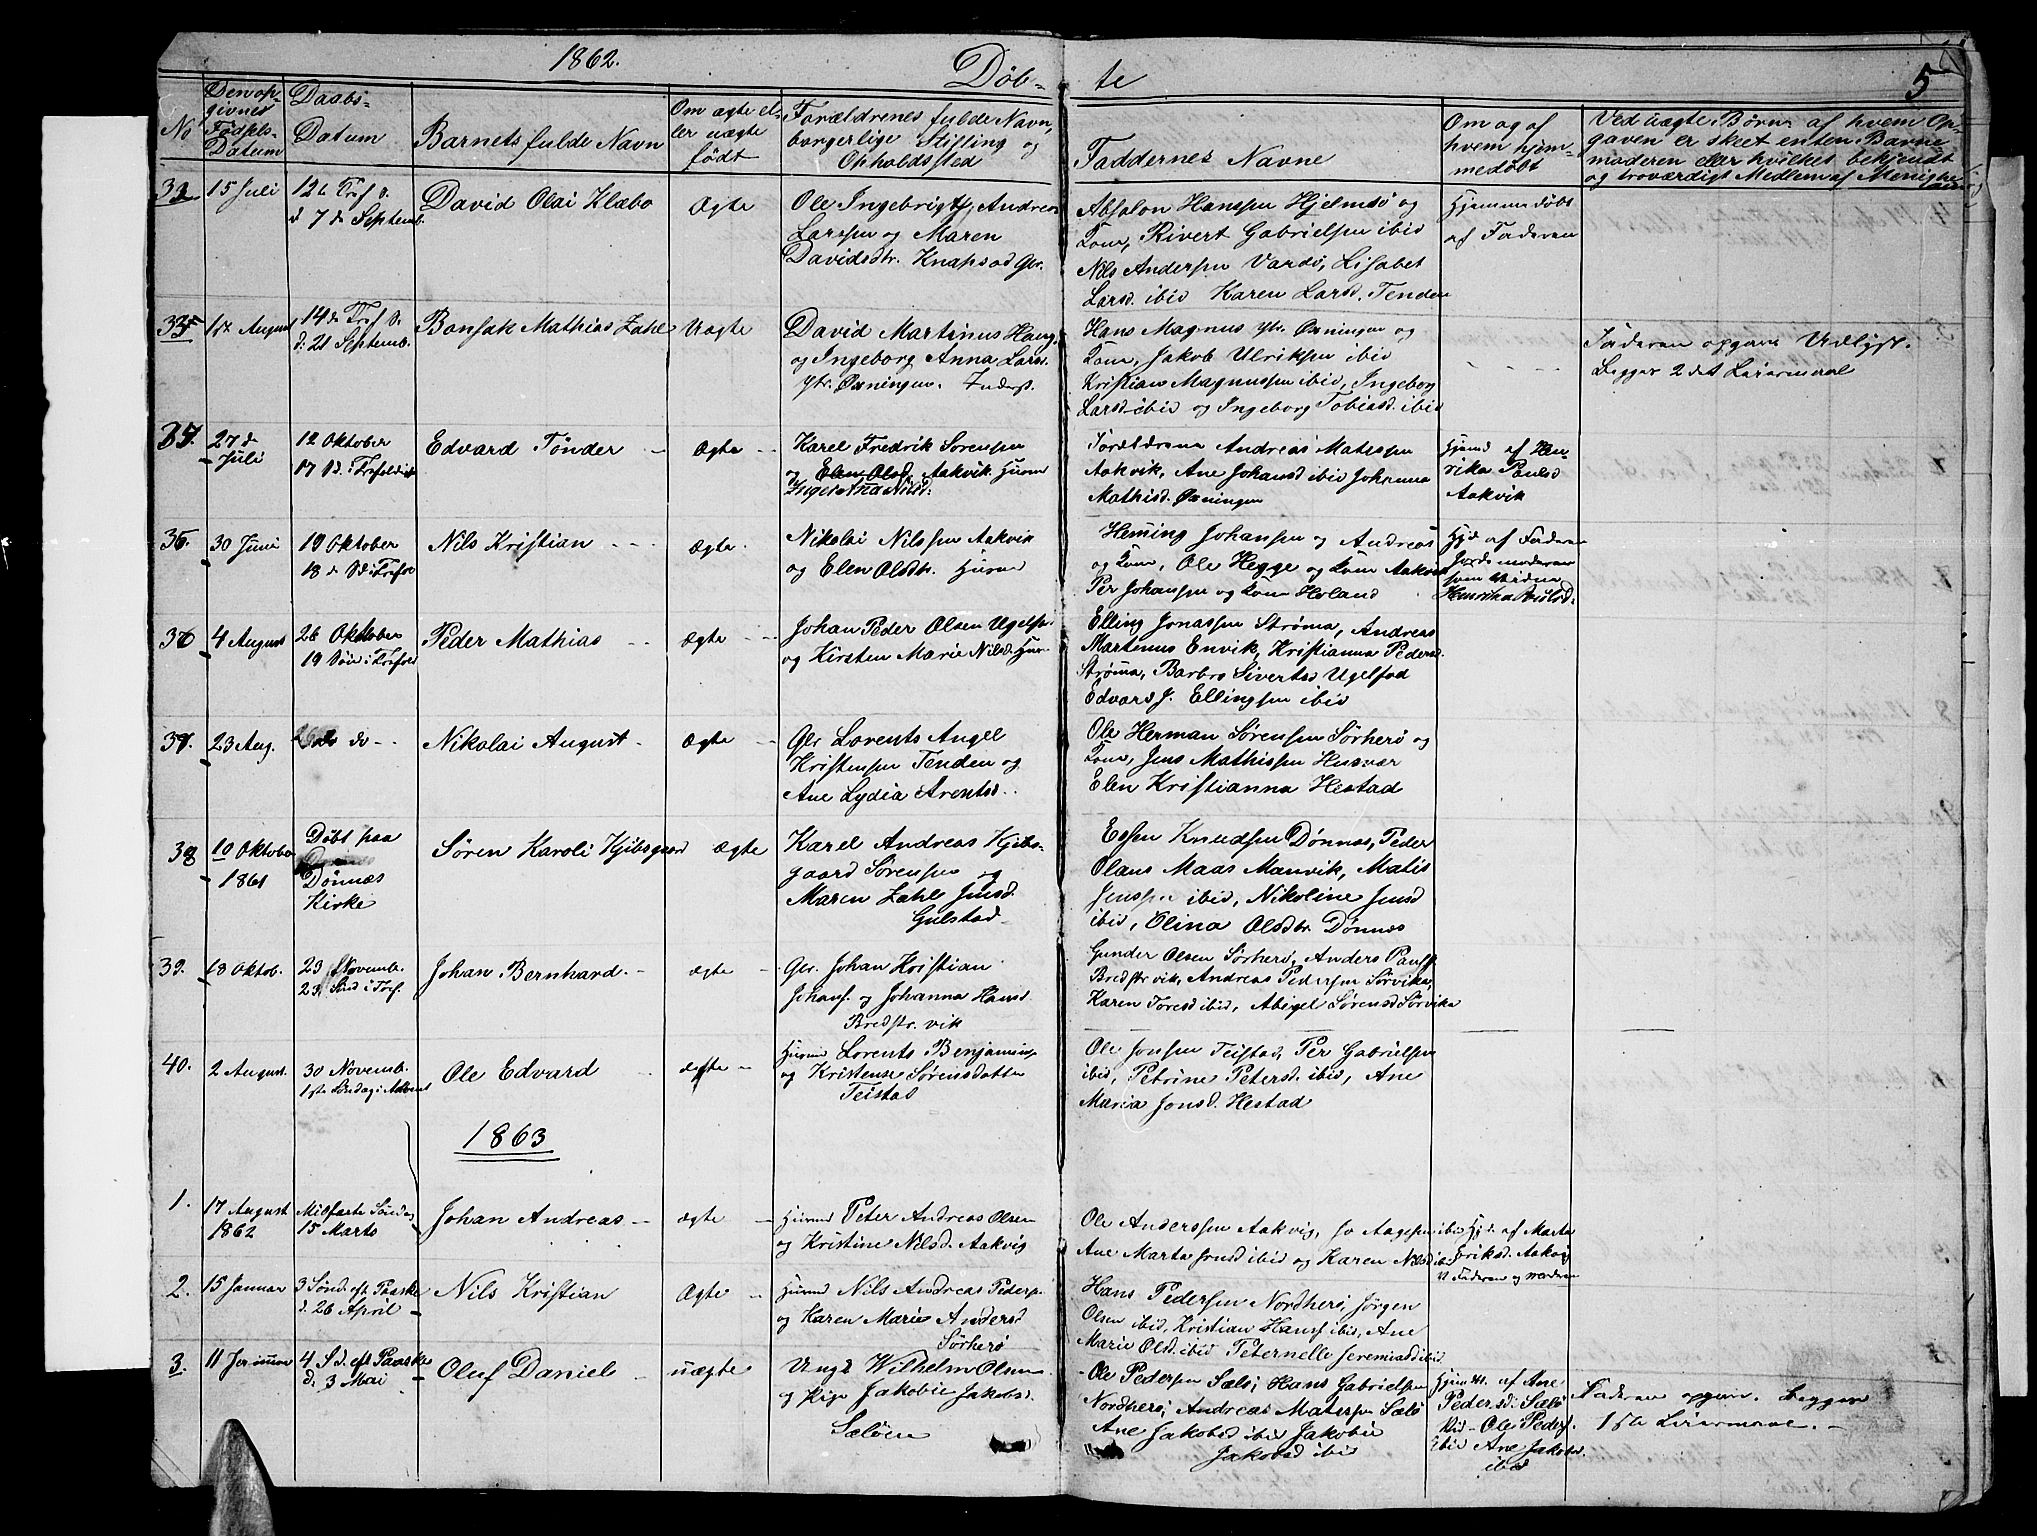 1862.
Døb- te
5
No
Den op-
givne
Fødsels-
Datum
Daabs-
Datum
Barnets fulde Navn
Om ægte el-
ler uægte
født
Forældrenes fulde Navn,
borgerlige Stilling og
Opholdssted
Faddernes Navne
Om og af
hvem hjem-
medøbt
Ved uægte Børn af hvem Op-
gaven er skeet enten Barne
moderen eller hvilket bekjendt
og troværdigt Medlem af Menighe
15 Juli
12te Tref S.
d 7 de Septemb.
David Olai Klæbo
Ægte
Ole Ingebrigts, Andreas
Larssen og Maren
Davidsdr. Knapstad Gbr.
Absalon Hanssen Hjelmsø og
Kone, Rivert Gabrielsen ibid
Nils Andersen Vardø, Lisabet
Larsd. ibid Karen Larsd. Tenden
Hjemmedøbt
af Faderen
1ste August
14de Tref S.
d. 21 Septemb.
Bonsak Mathias Zahl
Uægte
David Martinus Hans
og Ingeborg Anna Lars.
ytr. Øxningen. Inderst.
Hans Magnus ytr. Øxningen og
Kone, Jakob Ulriksen ibid
Kristian Magnussen ibid, Ingeborg
Larsd ibid og Ingeborg Tobiasd. ibid
Faderen opgav Udlagt.
Begges 2det Leiermaal
27 de
Juli
12 Oktober
17 S. i Trefoldigh
Edvard Tønder
Ægte
Karel Fredrik Sørensen
og Elen Olsd. Aakvik Huusm
Inger Nilsd.
Forældrene Andreas Matessen
Aakvik, Ane Johansd ibid Johanna
Mathisd. Øxningen
Hjemd af Hen
rika Paulsd
Aakvik
35.
30 Juni
19 Oktober
18 de Sd i Trefol
Nils Kristian
Ægte
Nikolai Nilssen Aakvik
og Elen Olsdr. Huusm
Heming Johansen og Andreas
og Kone, Ole Hegge og Kone Aakvik
Per Johansen og Kone Høland
Hjd af Faderen
Jordemoderen
som Vidne
Henrika Paulsd.
36
4 August
26 Oktober
19 Søn i Trefold
Peder Mathias
Ægte
Johan Peder Olsen Ugelfs.
og Kirsten Marie Nilsd. Huu
Elling Jonassen Strøma, Andreas
Martenus Envik, Kristianna Peders
Strøma, Barbro Sivertsd Ugelfod
Edvard J. Ellingsen ibid
37.
23 Aug.
do
Nikolai August
Ægte
Gbr Lorents Angel
Kristensen Tenden og
Ane Lydia Arentsd.
Ole Herman Sørensen Sørherø og
Kone, Jens Mathissen Husvær
Elen Kristianna Hestad
38
10 Oktober
1861
Døbt paa
Dønnæs
Kirke
Søren Karoli Kjibsgaard
ægte
Karel Andreas Kjibs-
gaard Sørensen og
Maren Zahl Jensd.
Gulstad
Espen Knudsen Dønnæs, Peder
Olaus Maas Manvik, Matis
Jenssen ibid, Nikoline Jensd
ibid, Elina Olsdtr Dønnæs
39.
18 Oktob.
23 Novemb.
23. Snd i Tref.
Johan Bernhard
ægte
Gbr. Johan Kristian
Johans. og Johanna Hansd.
Bredstr. vik
Gunder Olsen Sørherø, Anders Pauss.
Bredstr vik, Andreas Pedersen Sørvika,
Karen Toresd ibid, Abigel Sørensd Sørvika
40.
2 August.
30 Novemb.
1ste Søndag i Advent
Ole Edvard
ægte
Huusmd Lorents Benjamins
og Kristense Sørensdatter
Teistad
Ole Jonsen Teistad, Per Gabrielsen
ibid, Petrine Petersd. ibid, Ane
Maria Jonsd. Hestad
1863
1.
17 August
1862
Midfaste Søndag
15 Marts
Johan Andreas
ægte
Huusmd Peter Andreas Olsen
og Kristine Nilsd. Aakvig
Ole Anderssen Aakvig, Jo Aagesen ibid
Ane Marta Jensd ibid og Karen Nilsd ibid
Hjd. af Marta
Eriksd. Aakvig
V. Faderen og moderen
2.
15 Januar
3 Sønd. eft Paaske
d. 26 April
Nils Kristian
Ægte
Huusmd Nils Andreas Peders.
og Karen Marie Andersd
Sørherø
Hans Pedersen Nordherø, Jørgen
Olsen ibid, Kristian Hans ibid, Ane
Marie Olsd. ibid Peternelle Jeremiasd ibid
3.
11 Januar
4 S d. eft Paaske
d. 3 Mai
Oluf Daniel
uægte
Ungk Wilhelm Olsen
og Pige Jakobie Jakobsd.
Sæløen
Ole Pedersen Sælø, Hans Gabrielsen
Nordherø, Andreas Matessen Sælø
Ane Jakobsd ibid Jakobie
Jakobsd ibid
Hjemdt. af Ane
Pedersd. Sælø
Vid- Ole Peders.
ibid Ane Jakobsd
ibid
Faderen opgivn. Begges
1ste Leiermaal.